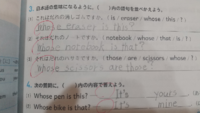 3. 日本語の意味になるように、( )内の語句を並べかえよう。
(1) これはだれの消しゴムですか。 ( is / eraser / whose / this / ? )
Whose eraser is this?
( notebook / whose / that / is / ? )
Whose notebook is that?
( those / are / scissors / whose / ? )
Whose scissors are those
4. 次の質問に、( )内の内容で答えよう。
(1) Whose pen is this? It's yours
(2) Whose bike is that? It's mine